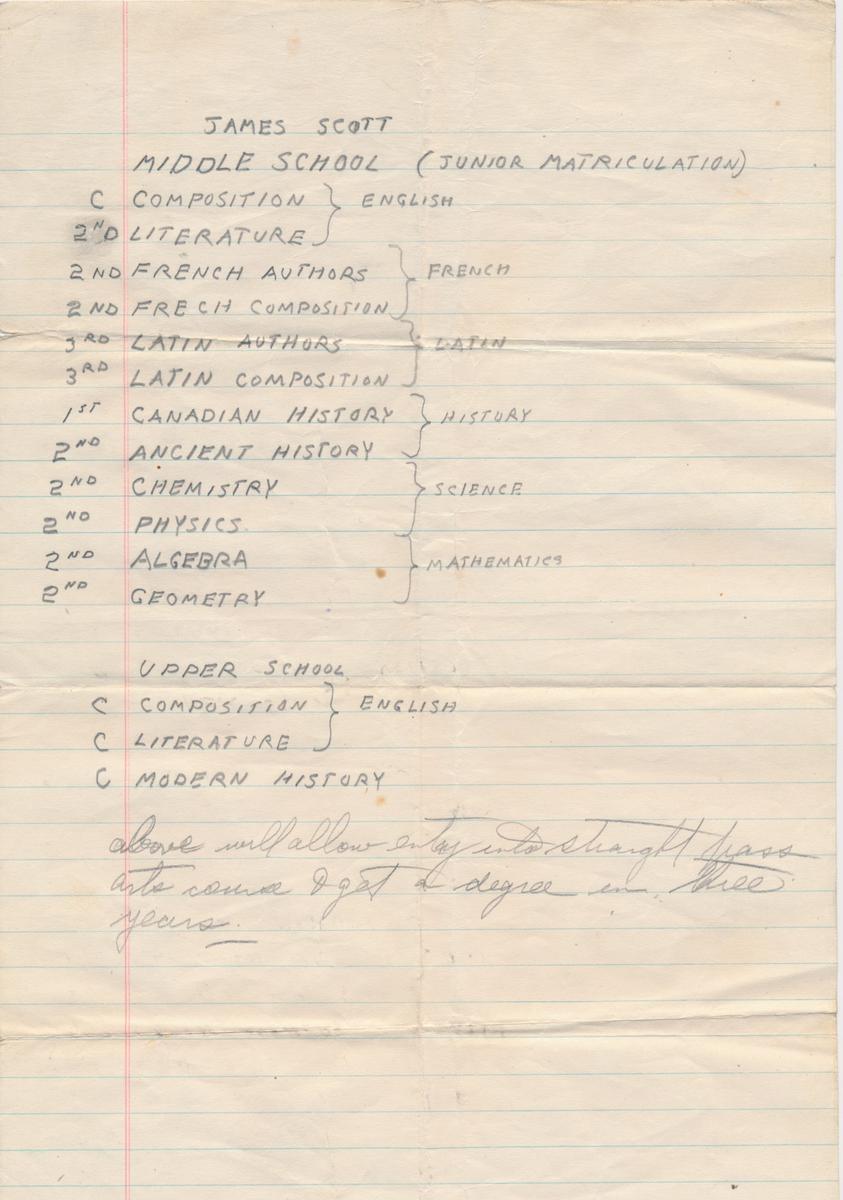 JAMES SCOTT
MIDDLE SCHOOL (JUNIOR MATRICULATION)
C COMPOSITION } ENGLISH
2ND LITERATURE
2ND FRENCH AUTHORS } FRENCH
2ND FRECH COMPOSITION
3RD LATIN AUTHORS } LATIN
3RD LATIN COMPOSITION
1ST CANADIAN HISTORY } HISTORY
2ND ANCIENT HISTORY
2ND CHEMISTRY } SCIENCE
2ND PHYSICS.
2ND ALGEBRA } MATHEMATICS
2ND GEOMETRY
UPPER SCHOOL
C COMPOSITION } ENGLISH
C LITERATURE
C MODERN HISTORY
above will allow entry into straight pass
arts course & get a degree in three
years.